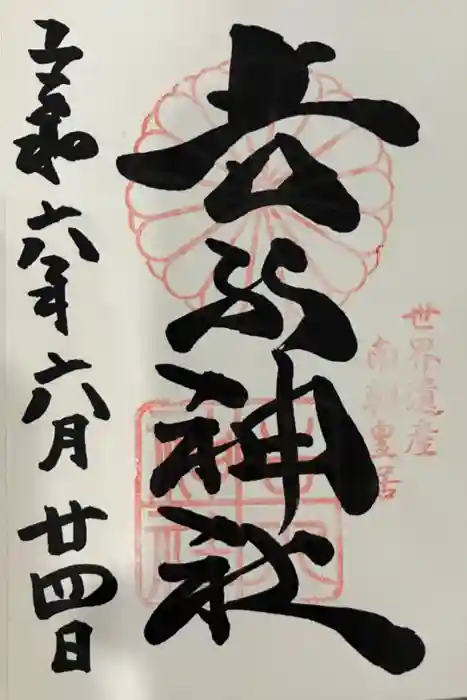 世界遺産
南朝皇居
吉水神社
令和六年六月廿四日